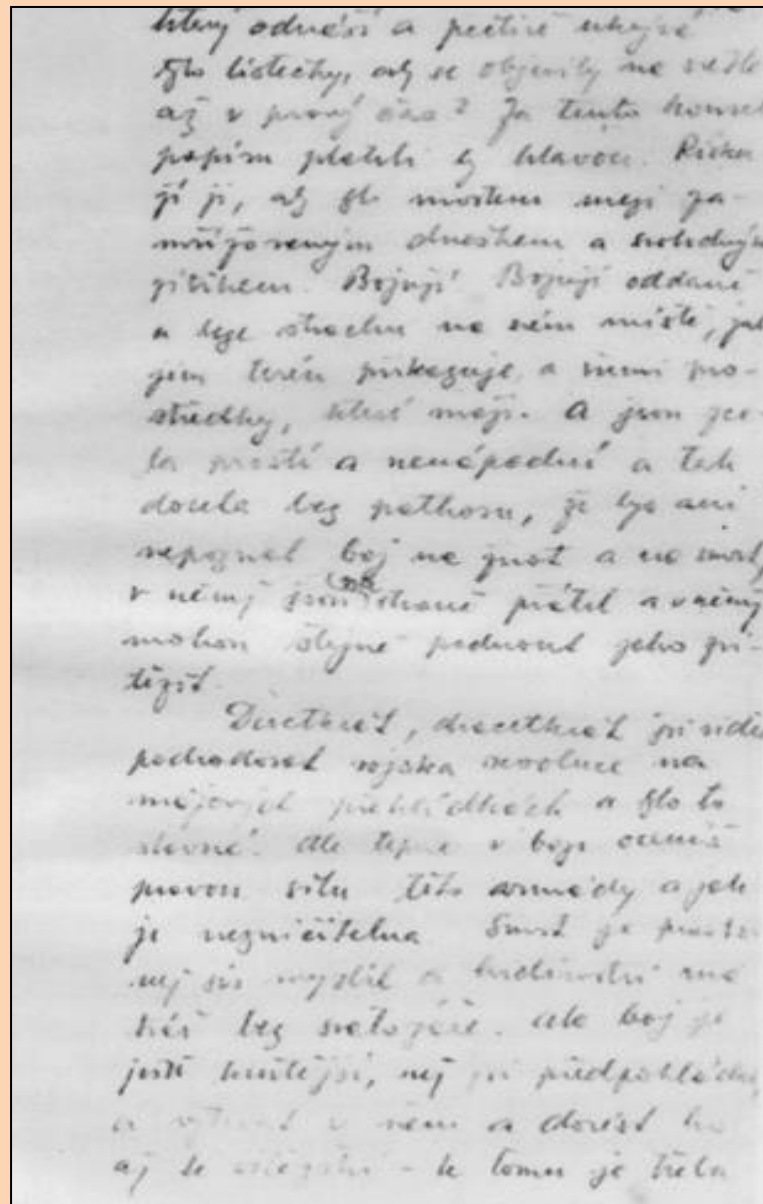 který odnáší a pečlivě ukrývá
tyto lístečky, aby se objevily na světle
až v pravý čas? Za tento kousek
papíru platili by hlavou. Riskují
ji, aby byli mostem mezi za-
mřížovaným dneškem a svobodným
zítřkem. Bojují. Bojují oddaně
a beze strachu na svém místě, jak
jim terén přikazuje, a všemi pro-
středky, které mají. A jsou zce-
la prostí a nenápadní a tak
docela bez pathosu, že bys ani
nepoznal boj na život a na smrt,
v němž jsou na straně přátel a v němž
mohou stejně padnout jako zví-
tězit.
Desetkrát, dvacetkrát jsi viděl
pochodovat vojska revoluce na
májových přehlídkách a bylo to
slavné. Ale teprve v boji oceníš
pravou sílu této armády a jak
je nezničitelná. Smrt je prostší,
než sis myslil a hrdinství má
tvář bez svatozáře. Ale boj je
ještě krutější, než jsi předpokládal,
a vytrvat v něm a dovést ho
až k vítězství – k tomu je třeba